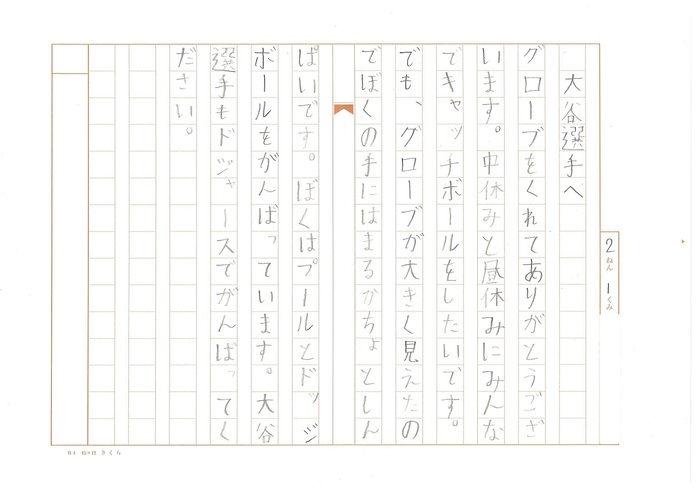 大谷選手へ
グローブをくれてありがとうござ
います。中休みと昼休みにみんな
でキャッチボールをしたいです。
でも、グローブが大きく見えたの
でぼくの手にはまるかちょとしん
ぱいです。ぼくはプールとドッジ
ボールをがんばっています。大谷
選手もドジャースでがんばってく
ださい。
2ねん1くみ